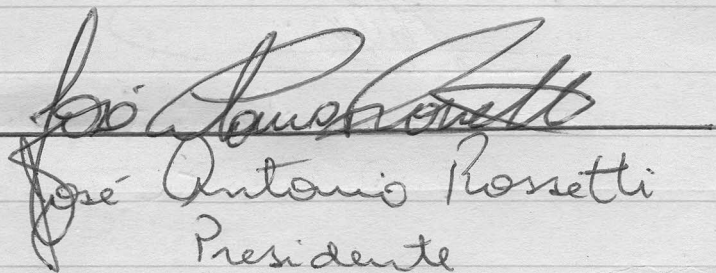 José Antonio Rossetti
José Antonio Rossetti
Presidente